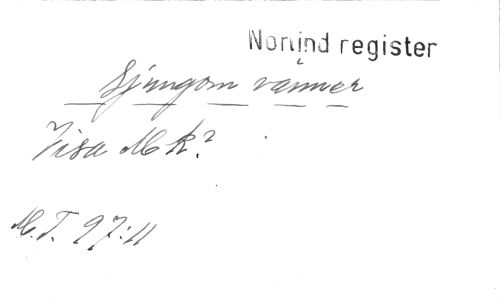 Norlind register
Sjungom vänner
Visa M K?
M.T. 97:11